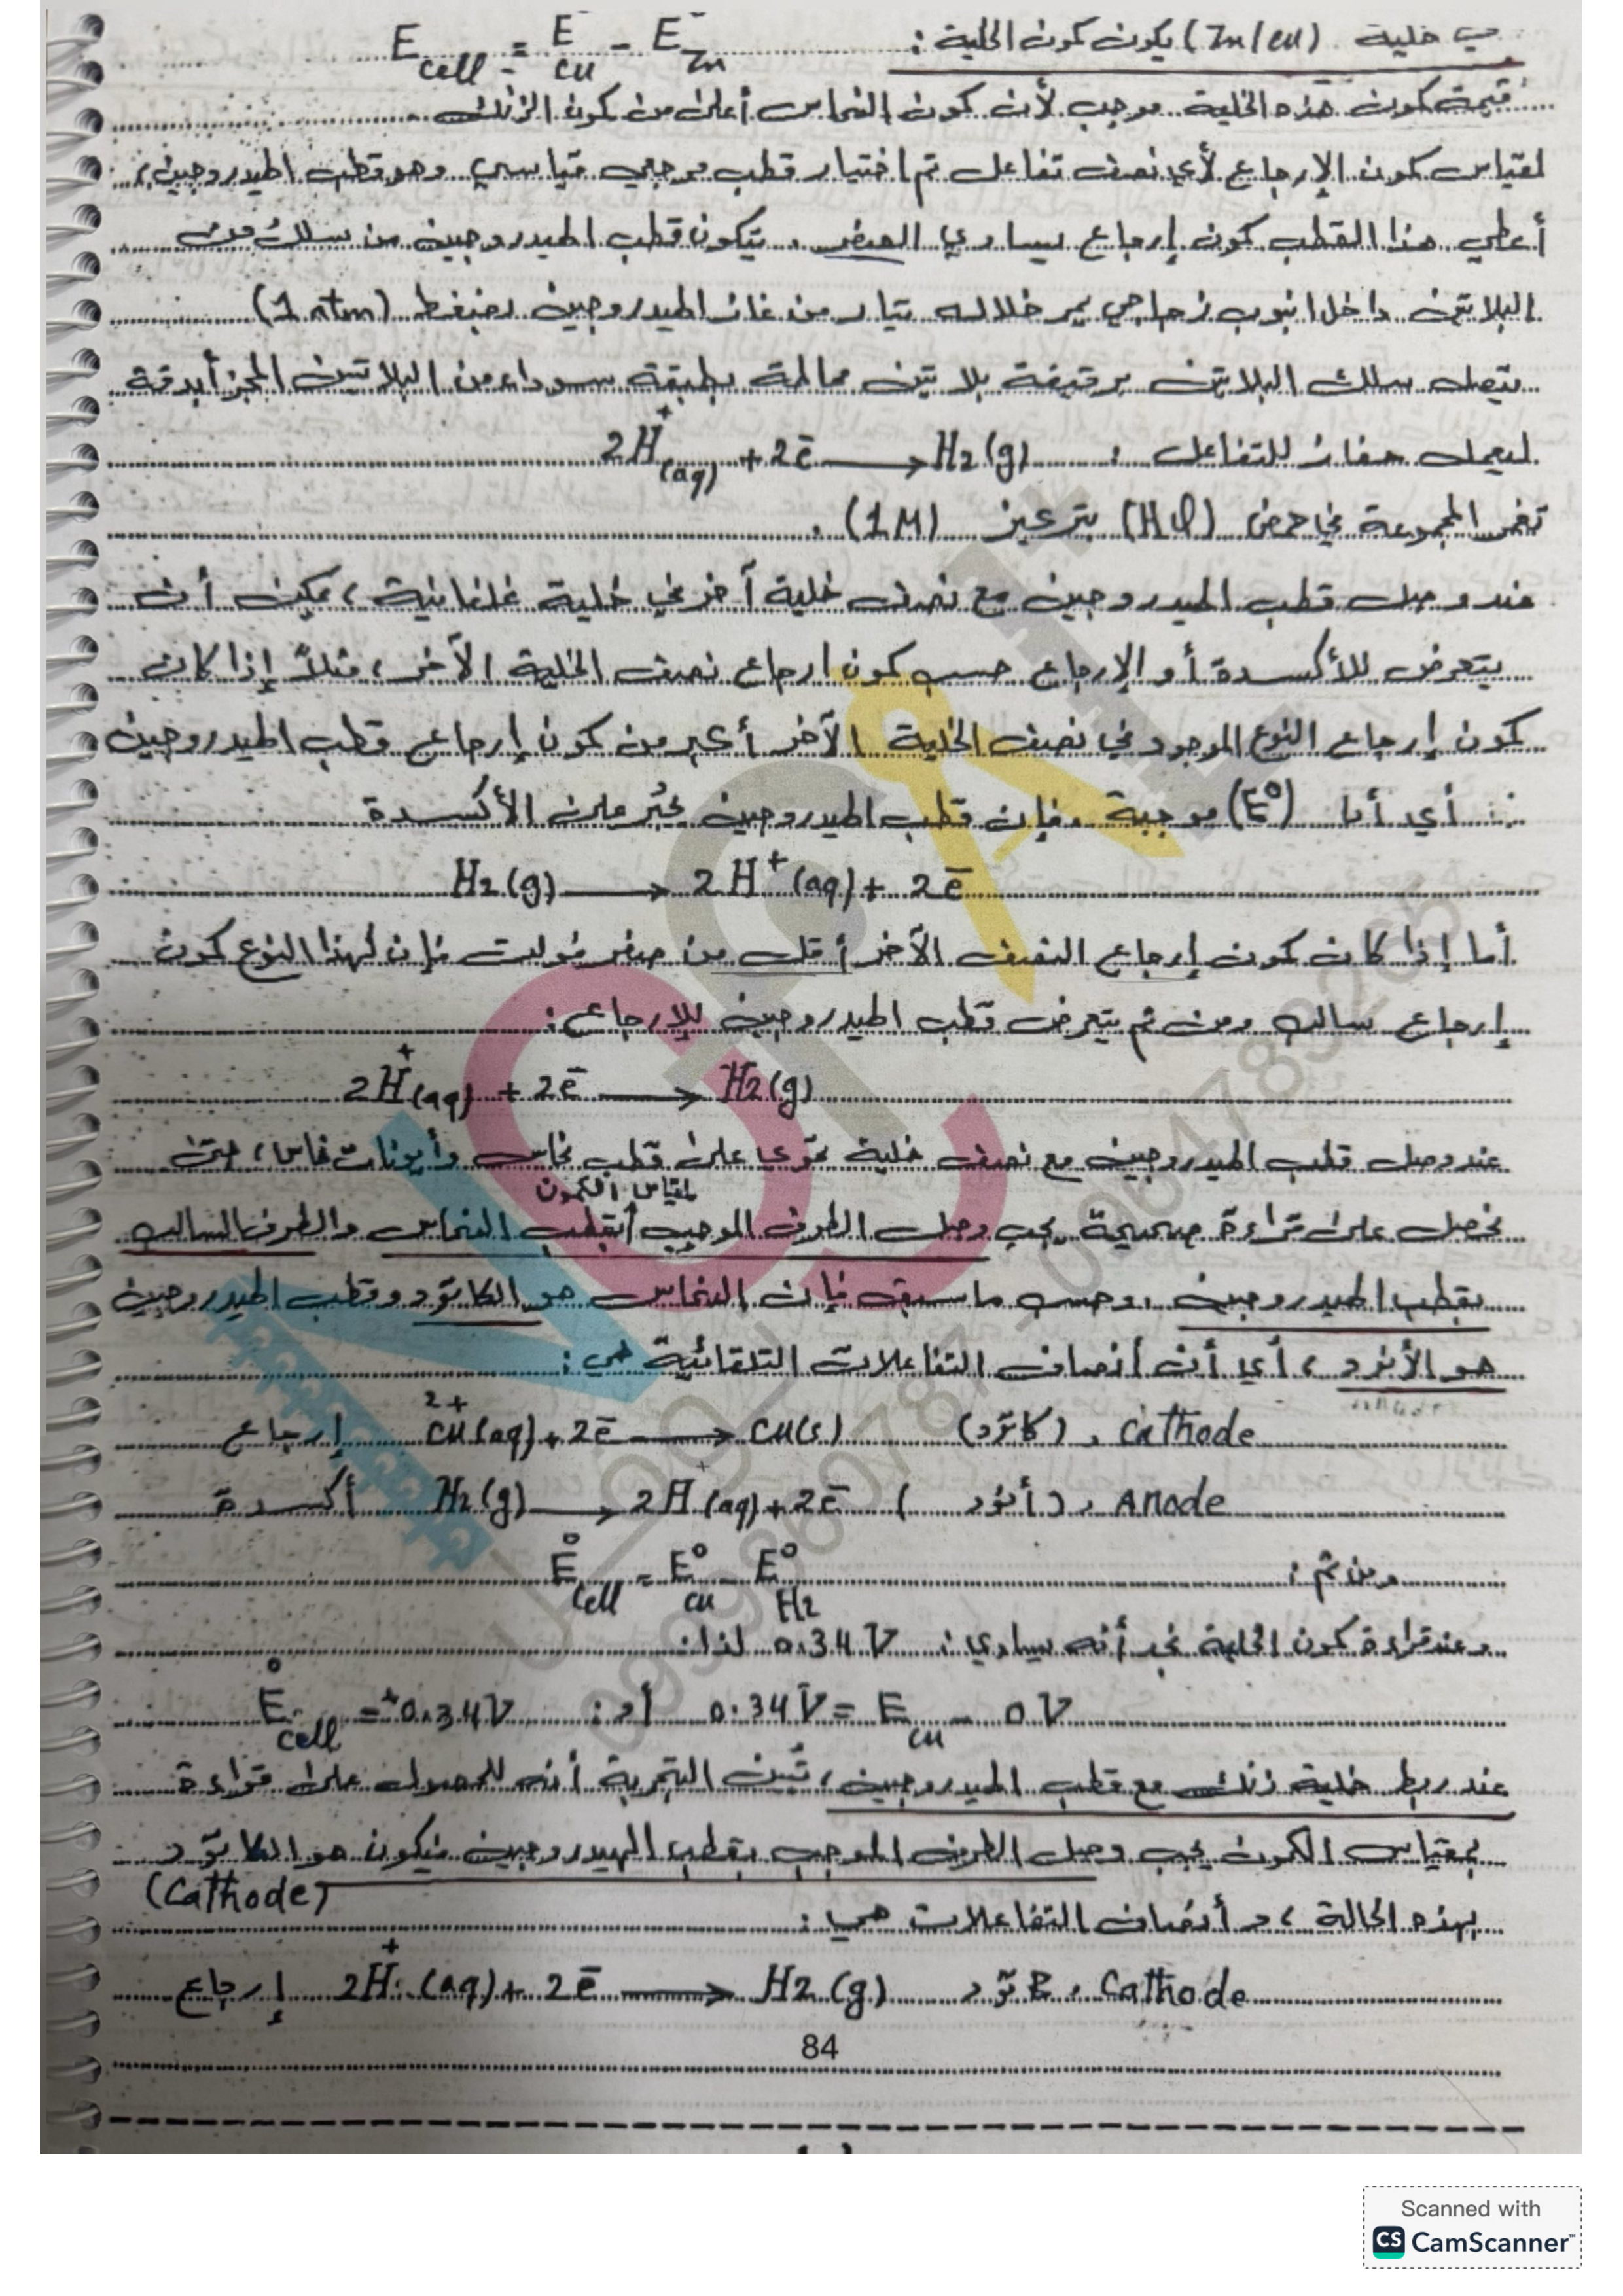 في خلية (Zn/cu) يكون كمون الخلية : E cell = E cu - E Zn
قيمة كمون هذه الخلية موجب لأن كمون النحاس أعلى من كمون الزنك .
لقياس كمون الإرجاع لأي نصف تفاعل تم اختيار قطب مرجعي قياسي وهو قطب الهيدروجين ،
أعطي هذا القطب كمون إرجاع يساوي الصفر . يتكون قطب الهيدروجين من سلك من
البلاتين داخل انبوب زجاجي يمر خلاله تيار من غاز الهيدروجين بضغط (1 atm)
يتصل سلك البلاتين برقيقة بلاتين مطلية بطبقة سوداء من البلاتين المجزأ بدقة
ليعمل حفاز للتفاعل : 2H⁺(aq) + 2ē → H2(g)
تغمر المجموعة في حمض (HCl) بتركيز (1M) .
عند وصل قطب الهيدروجين مع نصف خلية آخر في خلية غلفانية ، يمكن أن
يتعرض للأكسدة أو الإرجاع حسب كمون ارجاع نصف الخلية الآخر ، مثلاً إذا كان
كمون إرجاع النوع الموجود في نصف الخلية الآخر أكبر من كمون إرجاع قطب الهيدروجين
أي أن (E°) موجبة ، فإن قطب الهيدروجين يجبر على الأكسدة
H2(g) → 2H⁺(aq) + 2ē
أما إذا كان كمون إرجاع النصف الآخر أقل من صفر فولت فإن لهذا النوع كمون
إرجاع سالب ومن ثم يتعرض قطب الهيدروجين للإرجاع :
2H⁺(aq) + 2ē → H2(g)
عند وصل قطب الهيدروجين مع نصف خلية تحوي على قطب نحاس وأيونات نحاس ، حتى
لمقياس الكمون
نحصل على قراءة صحيحة يجب وصل الطرف الموجب بقطب النحاس والطرف السالب
بقطب الهيدروجين ، وحسب ما سبق فإن النحاس هو الكاتود وقطب الهيدروجين
هو الأنود ، أي أن أنصاف التفاعلات التلقائية هي :
إرجاع Cu²⁺(aq) + 2ē → Cu(s) (كاتود) ، Cathode
أكسدة H2(g) → 2H⁺(aq) + 2ē (أنود) ، Anode
ومن ثم : E° cell = E° cu - E° H2
وعند قراءة كمون الخلية نجد أنه يساوي : 0.34 V لذا :
E° cell = +0.34V أو : 0.34V = E cu - 0V
عند ربط خلية زنك مع قطب الهيدروجين ، تبين التجربة أنه للحصول على قراءة
بمقياس الكمون يجب وصل الطرف الموجب بقطب الهيدروجين فيكون هو الكاتود
(Cathode)
بهذه الحالة ، و أنصاف التفاعلات هي :
إرجاع 2H⁺(aq) + 2ē → H2(g) ، Cathode
84
Scanned with
CS CamScanner